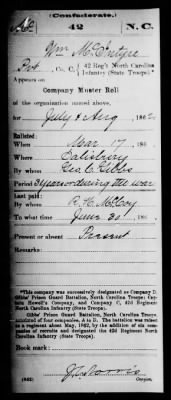 (Confederate.)
Mc 42 N.C.
Wm McEntyre
Pvt, Co. C, 42 Reg't North Carolina
Infantry (State Troops).
Appears on
Company Muster Roll
of the organization named above,
for July & Aug, 1862.
Enlisted:
When Mar 17, 186
Where Salisbury
By whom Geo. C. Gibbs
Period 3 years or during the war
Last paid:
By whom R. H. McCoy
To what time June 30, 186
Present or absent Present
Remarks:
*This company was successively designated as Company D,
Gibbs' Prison Guard Battalion, North Carolina Troops; Cap-
tain Howell's Company, and Company C, 42d Regiment
North Carolina Infantry (State Troops).
Gibbs' Prison Guard Battalion, North Carolina Troops,
consisted of four companies, A to D. The battalion was raised
to a regiment about May, 1862, by the addition of six com-
panies of recruits and designated the 42d Regiment North
Carolina Infantry (State Troops).
Book mark:
(642) Copyist.